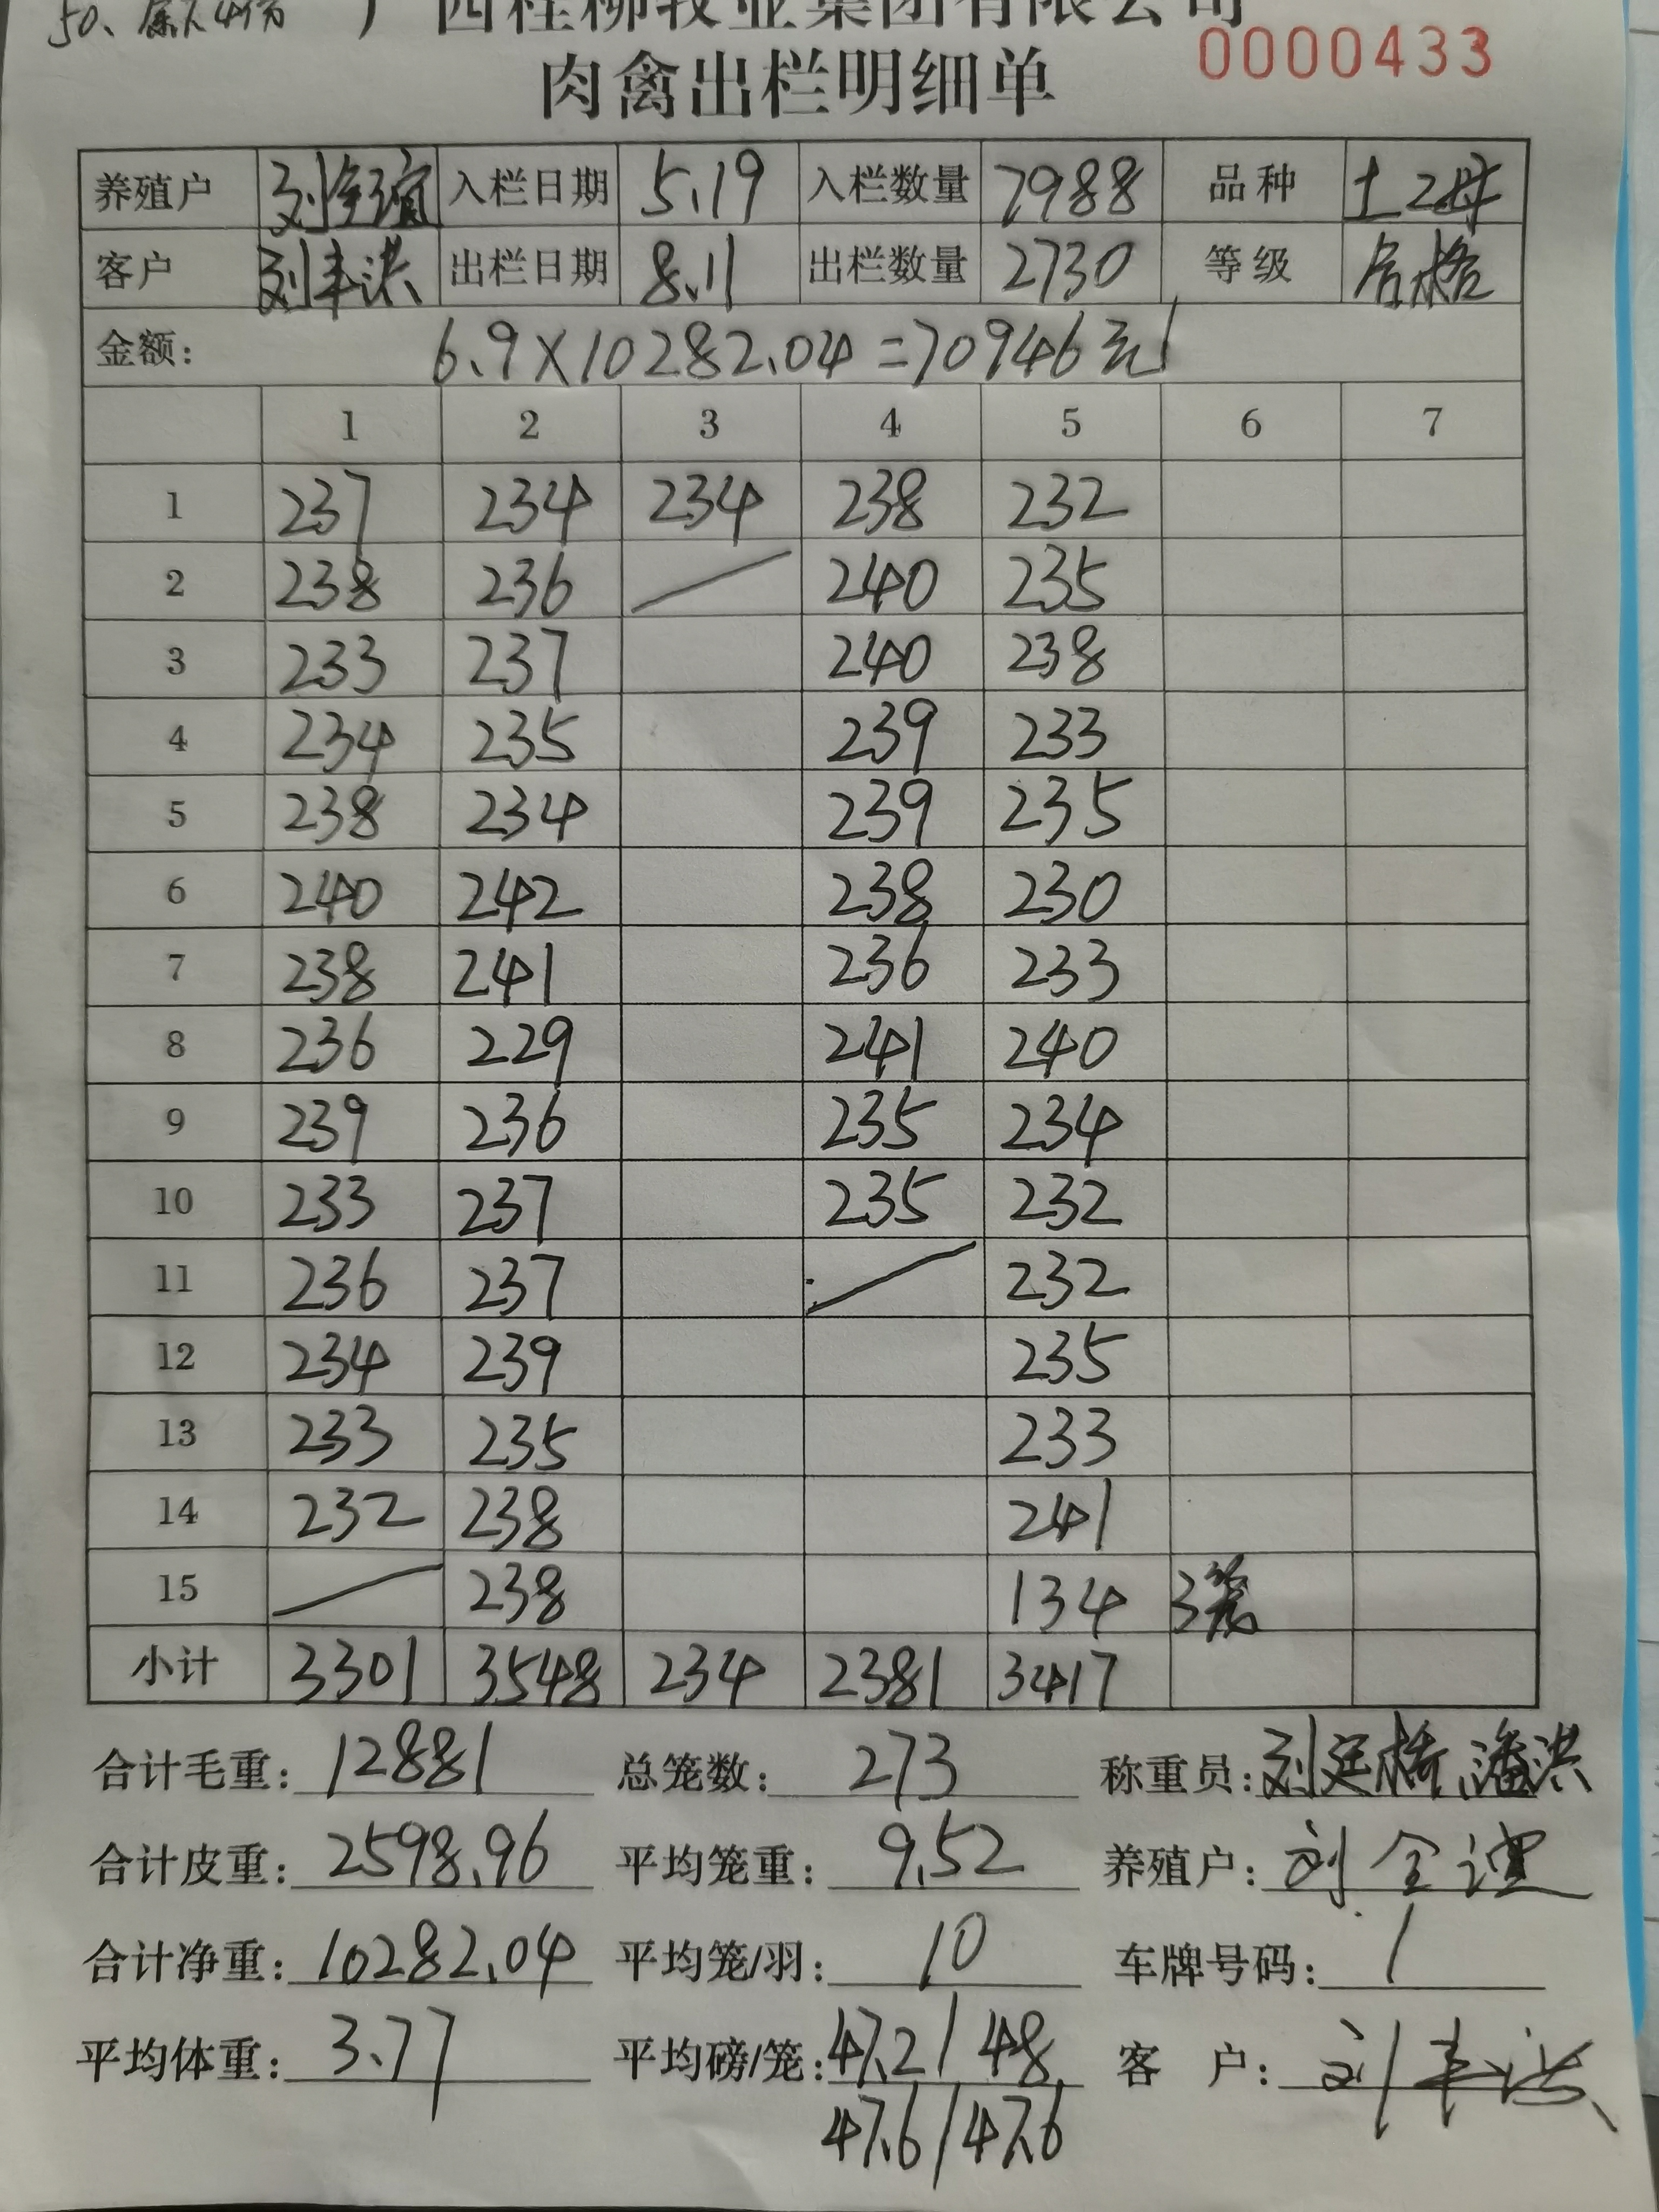 广西桂柳牧业集团有限公司
0000433
肉禽出栏明细单
养殖户 入栏日期 5.19 入栏数量 7988 品种 土2母
客户 刘丰洪 出栏日期 8.11 出栏数量 2730 等级 合格
金额: 6.9×10282.04=70946元
1 2 3 4 5 6 7
1 237 234 234 238 232
2 238 236 / 240 235
3 233 237 240 238
4 234 235 239 233
5 238 234 239 235
6 240 242 238 230
7 238 241 236 233
8 236 229 241 240
9 239 236 235 234
10 233 237 235 232
11 236 237 / 232
12 234 239 235
13 233 235 233
14 232 238 241
15 / 238 134 3笼
小计 3301 3548 234 2381 3417
合计毛重: 12881 总笼数: 273 称重员: 刘廷桥、潘洪
合计皮重: 2598.96 平均笼重: 9.52 养殖户:
合计净重: 10282.04 平均笼/羽: 10 车牌号码: 1
平均体重: 3.77 平均磅/笼: 47.2/48 客 户: 刘丰洪
47.6/47.6